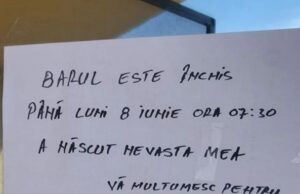 BARUL ESTE ÎNCHIS
PÂNĂ LUNI 8 IUNIE ORA 07:30
A NĂSCUT NEVASTA MEA
VĂ MULTUMESC PENTRU